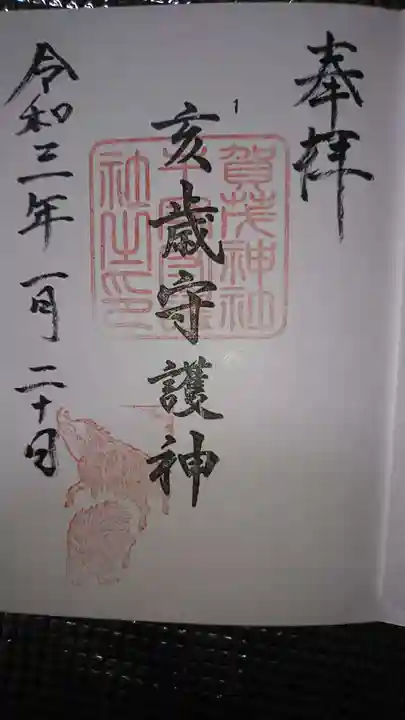 奉拝
1
亥歳守護神
賀茂神社
社之印
令和三年一月二十日